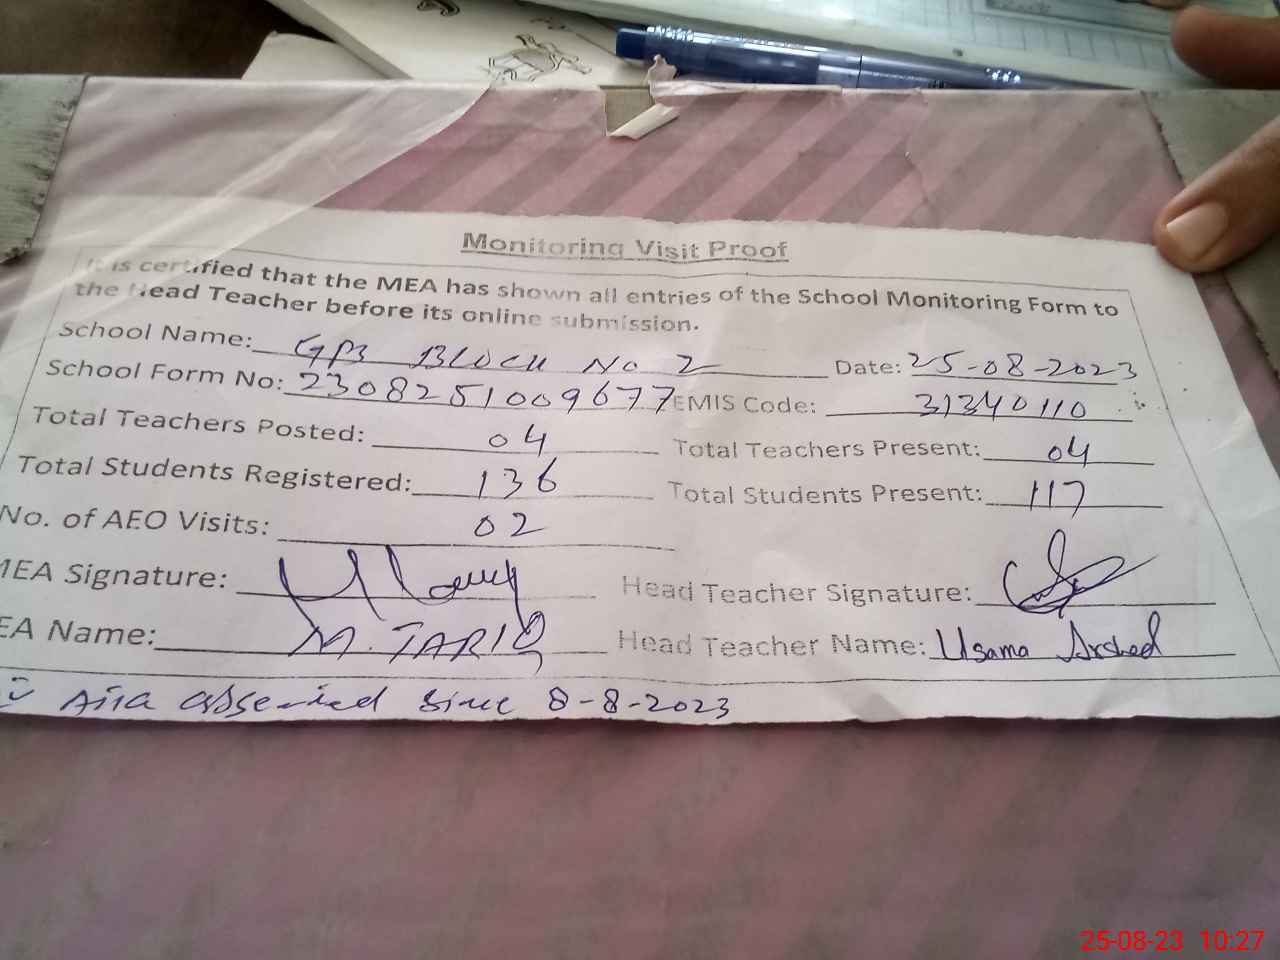 Monitoring Visit Proof
It is certified that the MEA has shown all entries of the School Monitoring Form to
the Head Teacher before its online submission.
School Name: GPS BLOCK No 2 Date: 25-08-2023
School Form No: 2308251009677 EMIS Code: 31340110
Total Teachers Posted: 04 Total Teachers Present: 04
Total Students Registered: 136 Total Students Present: 117
No. of AEO Visits: 02
MEA Signature: Head Teacher Signature:
EA Name: M. TARIQ Head Teacher Name: Usama Arshed
since 8-8-2023
25-08-23 10:27